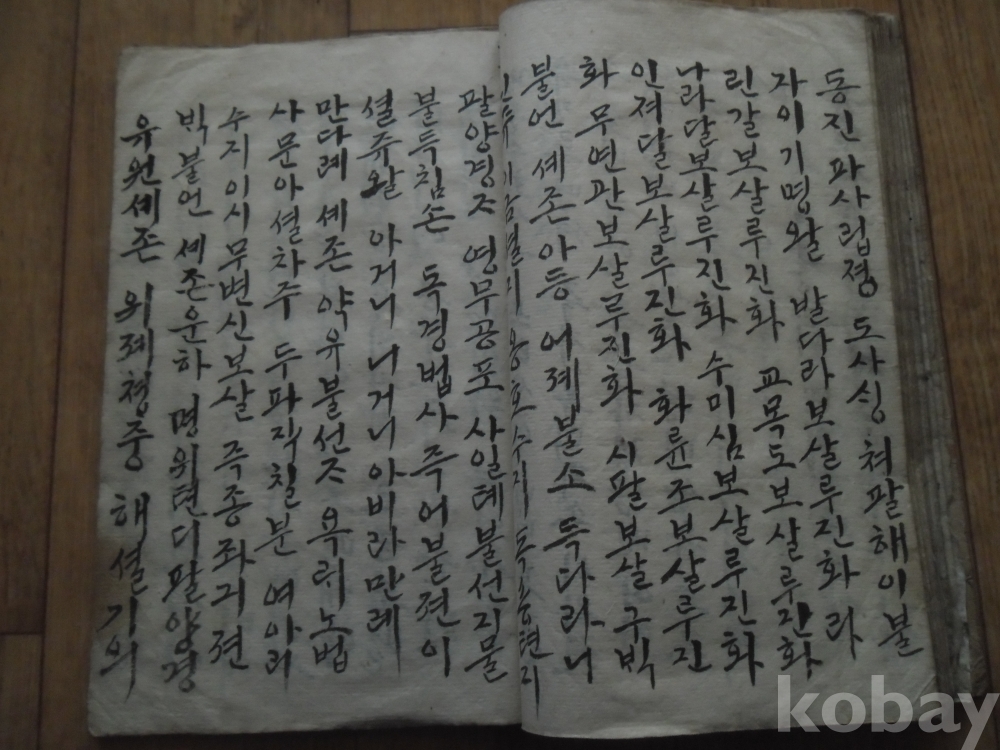 동진 파사립졍 도사싱 쳐팔해이불
자이기명왈 발다라보살루진화 라
린갈보살루진화 교목도보살루진화
나라달보살루진화 수미심보살루진화
인져달보살루진화 화륜조보살루진
화 무연관보살루진화 시팔보살 구빅
불언 셰존아등 어졔불소 득다라니
지 용호수지 독숑
팔양경ᄌᆞ 영무공포 사일톄불션지물
불득침손 독경법사 즉어불젼이
셜쥬왈 아거니 니거니아비라만례
만다례 셰존 약유불션ᄌᆞ 욕뤼노법
사문아셜차주 두파작칠분 여아리
수지 이시무변신보살 즉죵좌긔 젼
빅불언 셰존운하 명위텬디팔양경
유원셰존 위졔쳥중 해셜기의
kobay